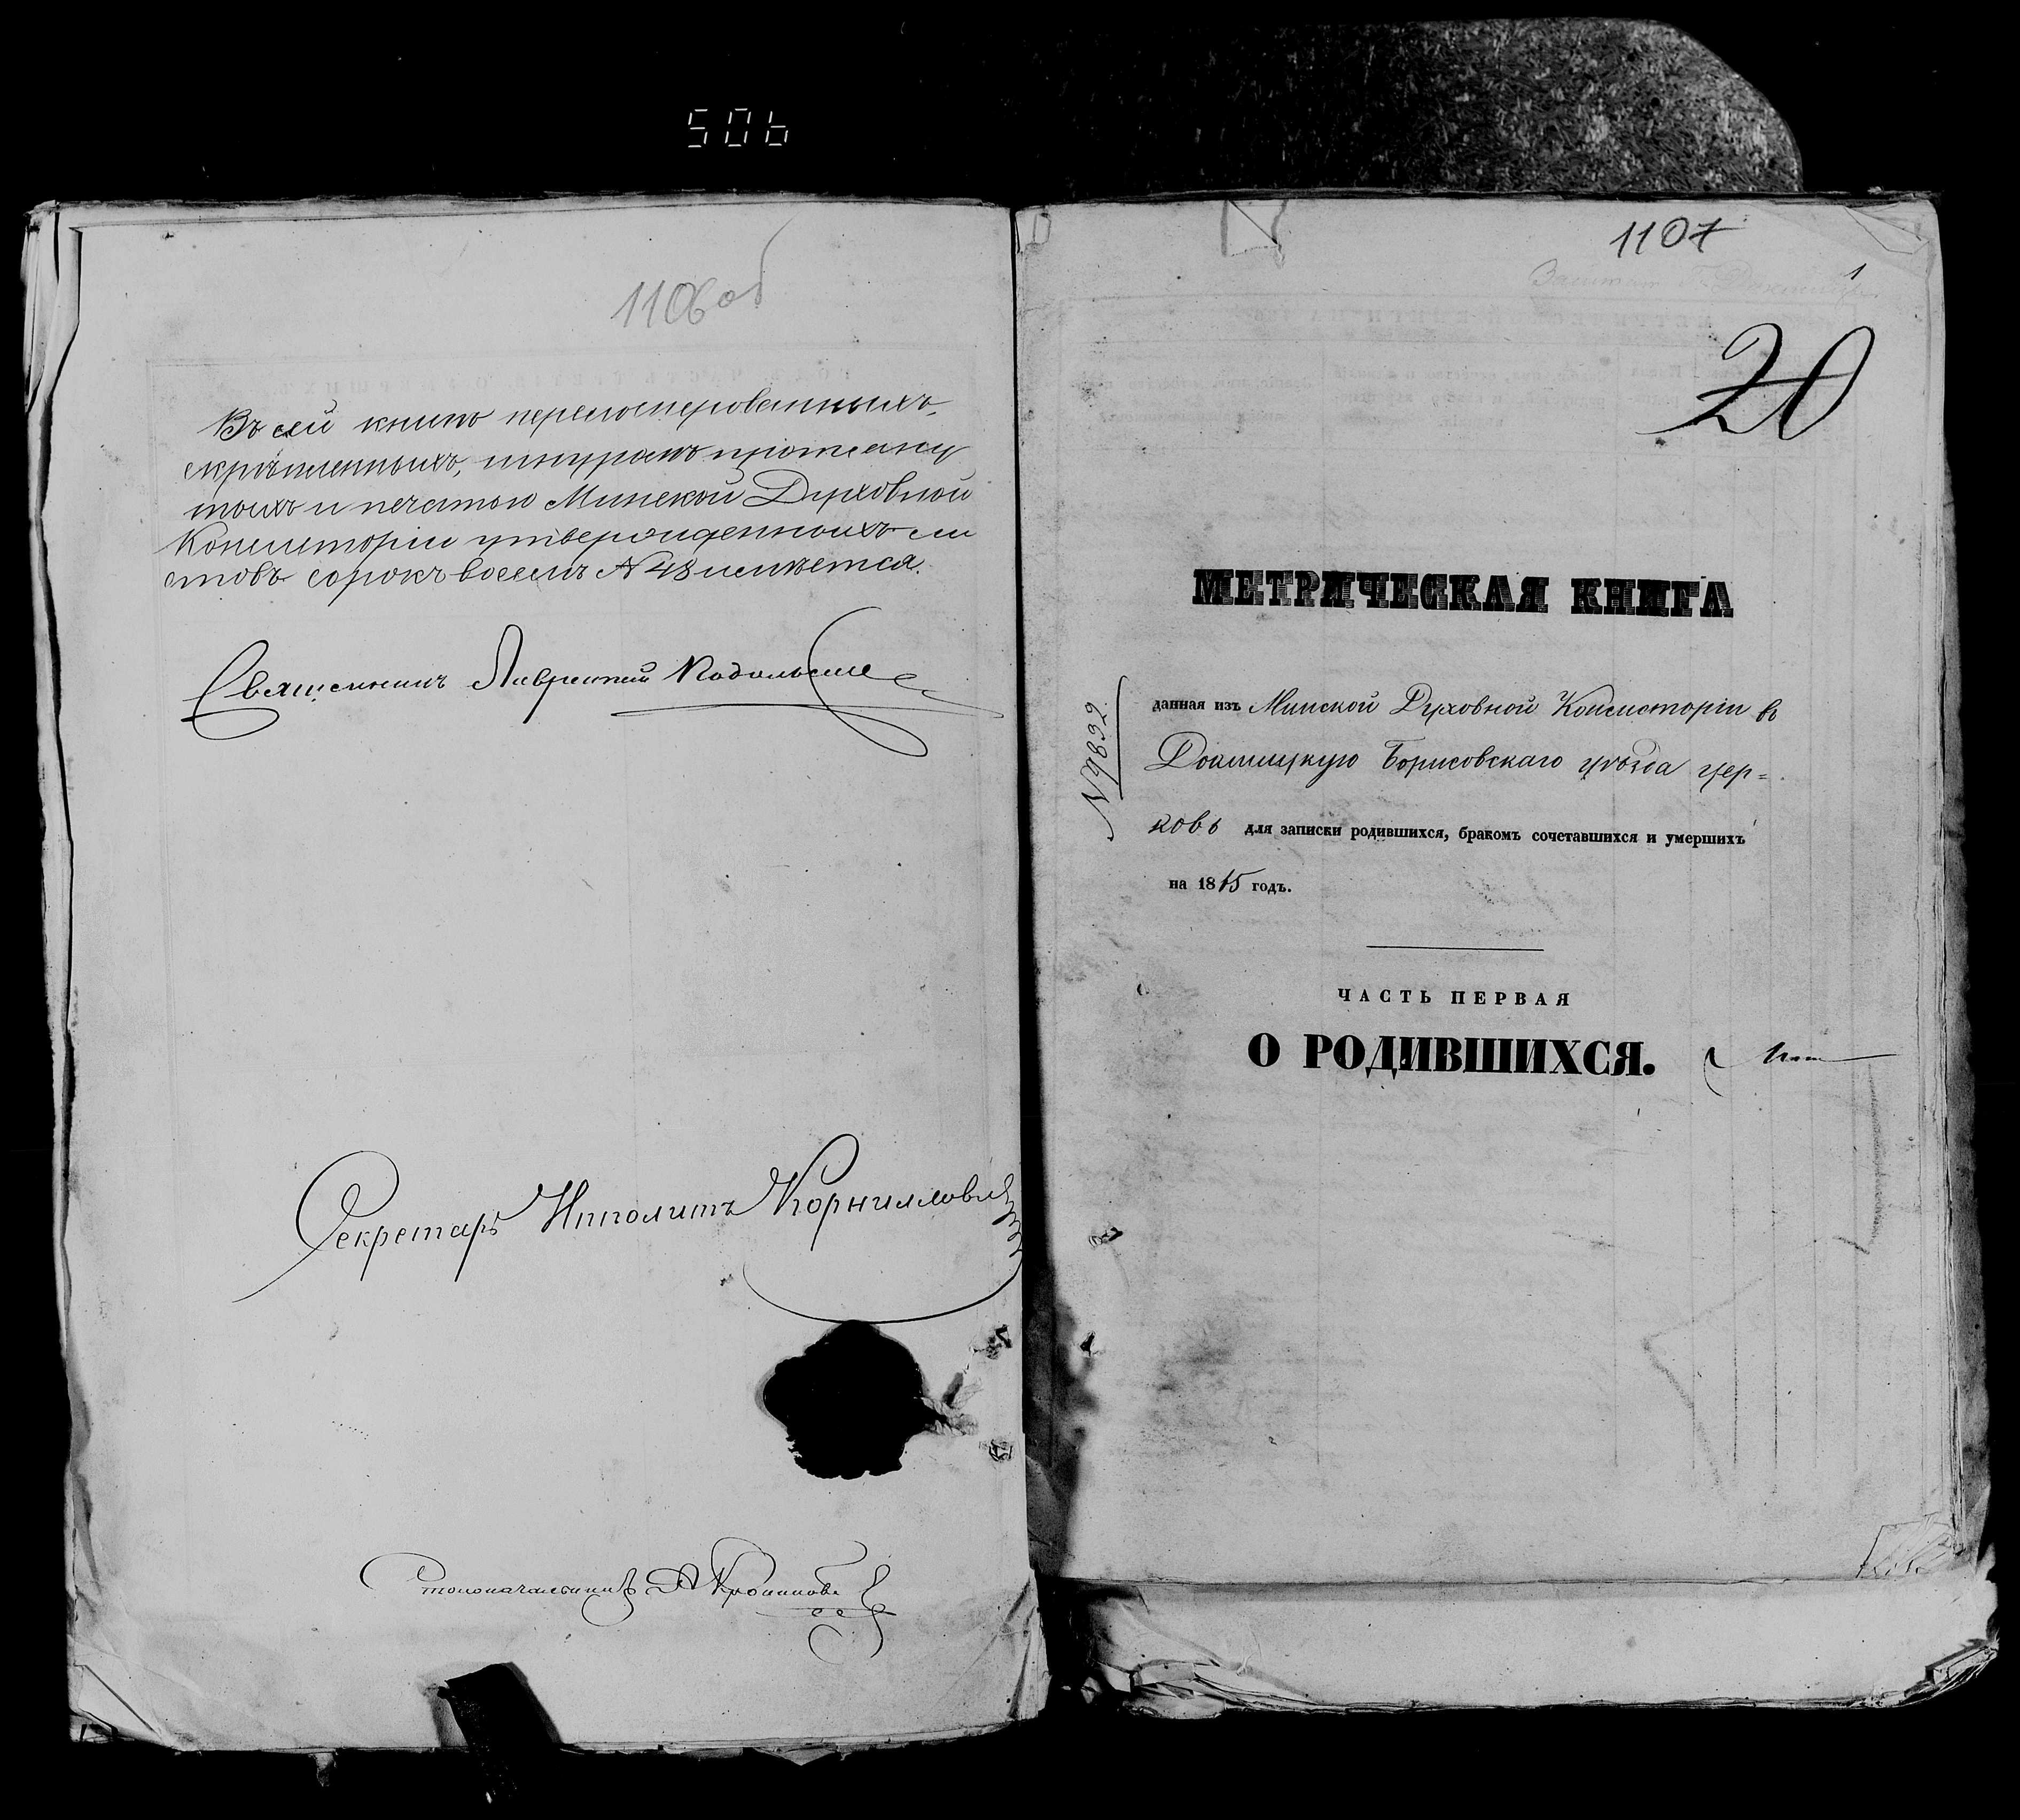 506
1106об
Въ сей книге перенумерованныхъ,
скрѣпленныхъ, шнуромъ протяну
тыхъ и печатью Минской Духовной
Консисторіи утвержденныхъ ли
стовъ сорокъ восемь N 48 имѣется.
Священникъ Лаврентій
Секретарь Ипполитъ Корниловичъ
Столоначальникъ
1107
1
20
МЕТРИЧЕСКАЯ КНИГА
N 9892
данная изъ Минской Духовной Консисторіи въ
Докшицкую Борисовскаго уѣзда цер=
ковь для записки родившихся, бракомъ сочетавшихся и умершихъ
на 18 годъ.
ЧАСТЬ ПЕРВАЯ
О РОДИВШИХСЯ.